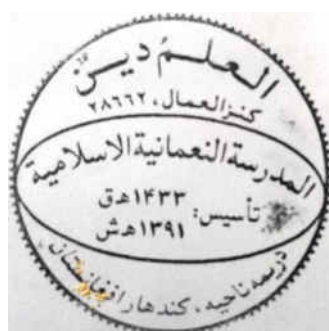 العلم دينٌ
كنز العمال، ٢٨٦٦٢
المدرسة النعمانية الاسلامية
تأسيس: ١٤٣٣ هـ ق
١٣٩١ هـ ش
دريمه ناحيه، كندهار افغانستان